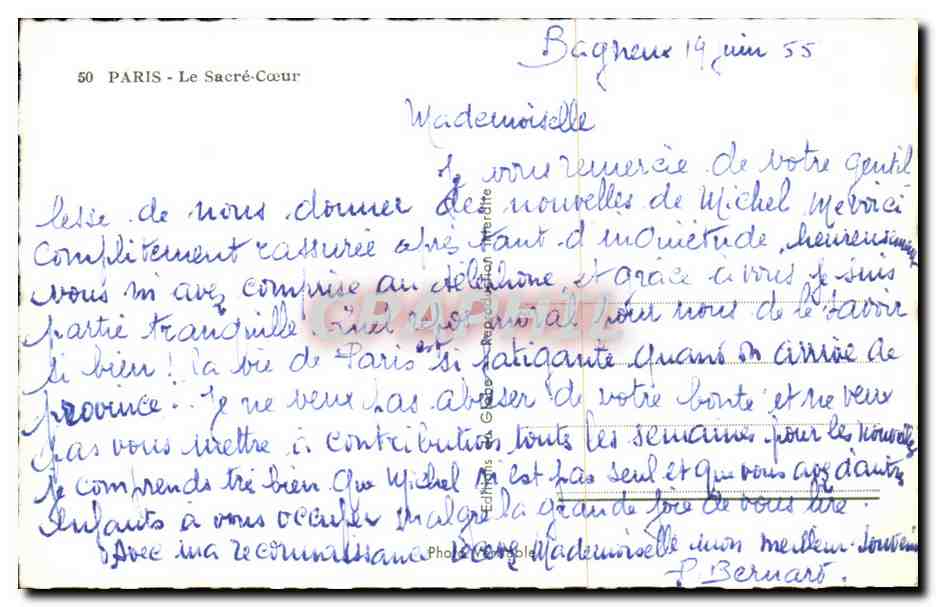 Bagneux 14 juin 55
50 PARIS - Le Sacré-Cœur
Mademoiselle
Je vous remercie de votre gentil
lesse de nous donner des nouvelles de Michel Me voici
complitement rassurée après tant d'inquiétude, heureusement
vous m'avez comprise au téléphone, et grâce à vous je suis
partie tranquille Quel repos moral pour nous de le savoir
si bien ! la vie de Paris est si fatigante quand on arrive de
province.. Je ne veux pas abuser de votre bonté et ne veux
pas vous mettre à contribution toutes les semaines pour les nouvelles
je comprends très bien que Michel n'est pas seul et que vous avez d'autres
enfants à vous occuper malgré la grande joie de vous lire.
Avec ma reconnaissance recevez Mademoiselle mon meilleur souvenir
P. Bernard.
Editions du Globe - Reproduction interdite
Photo véritable